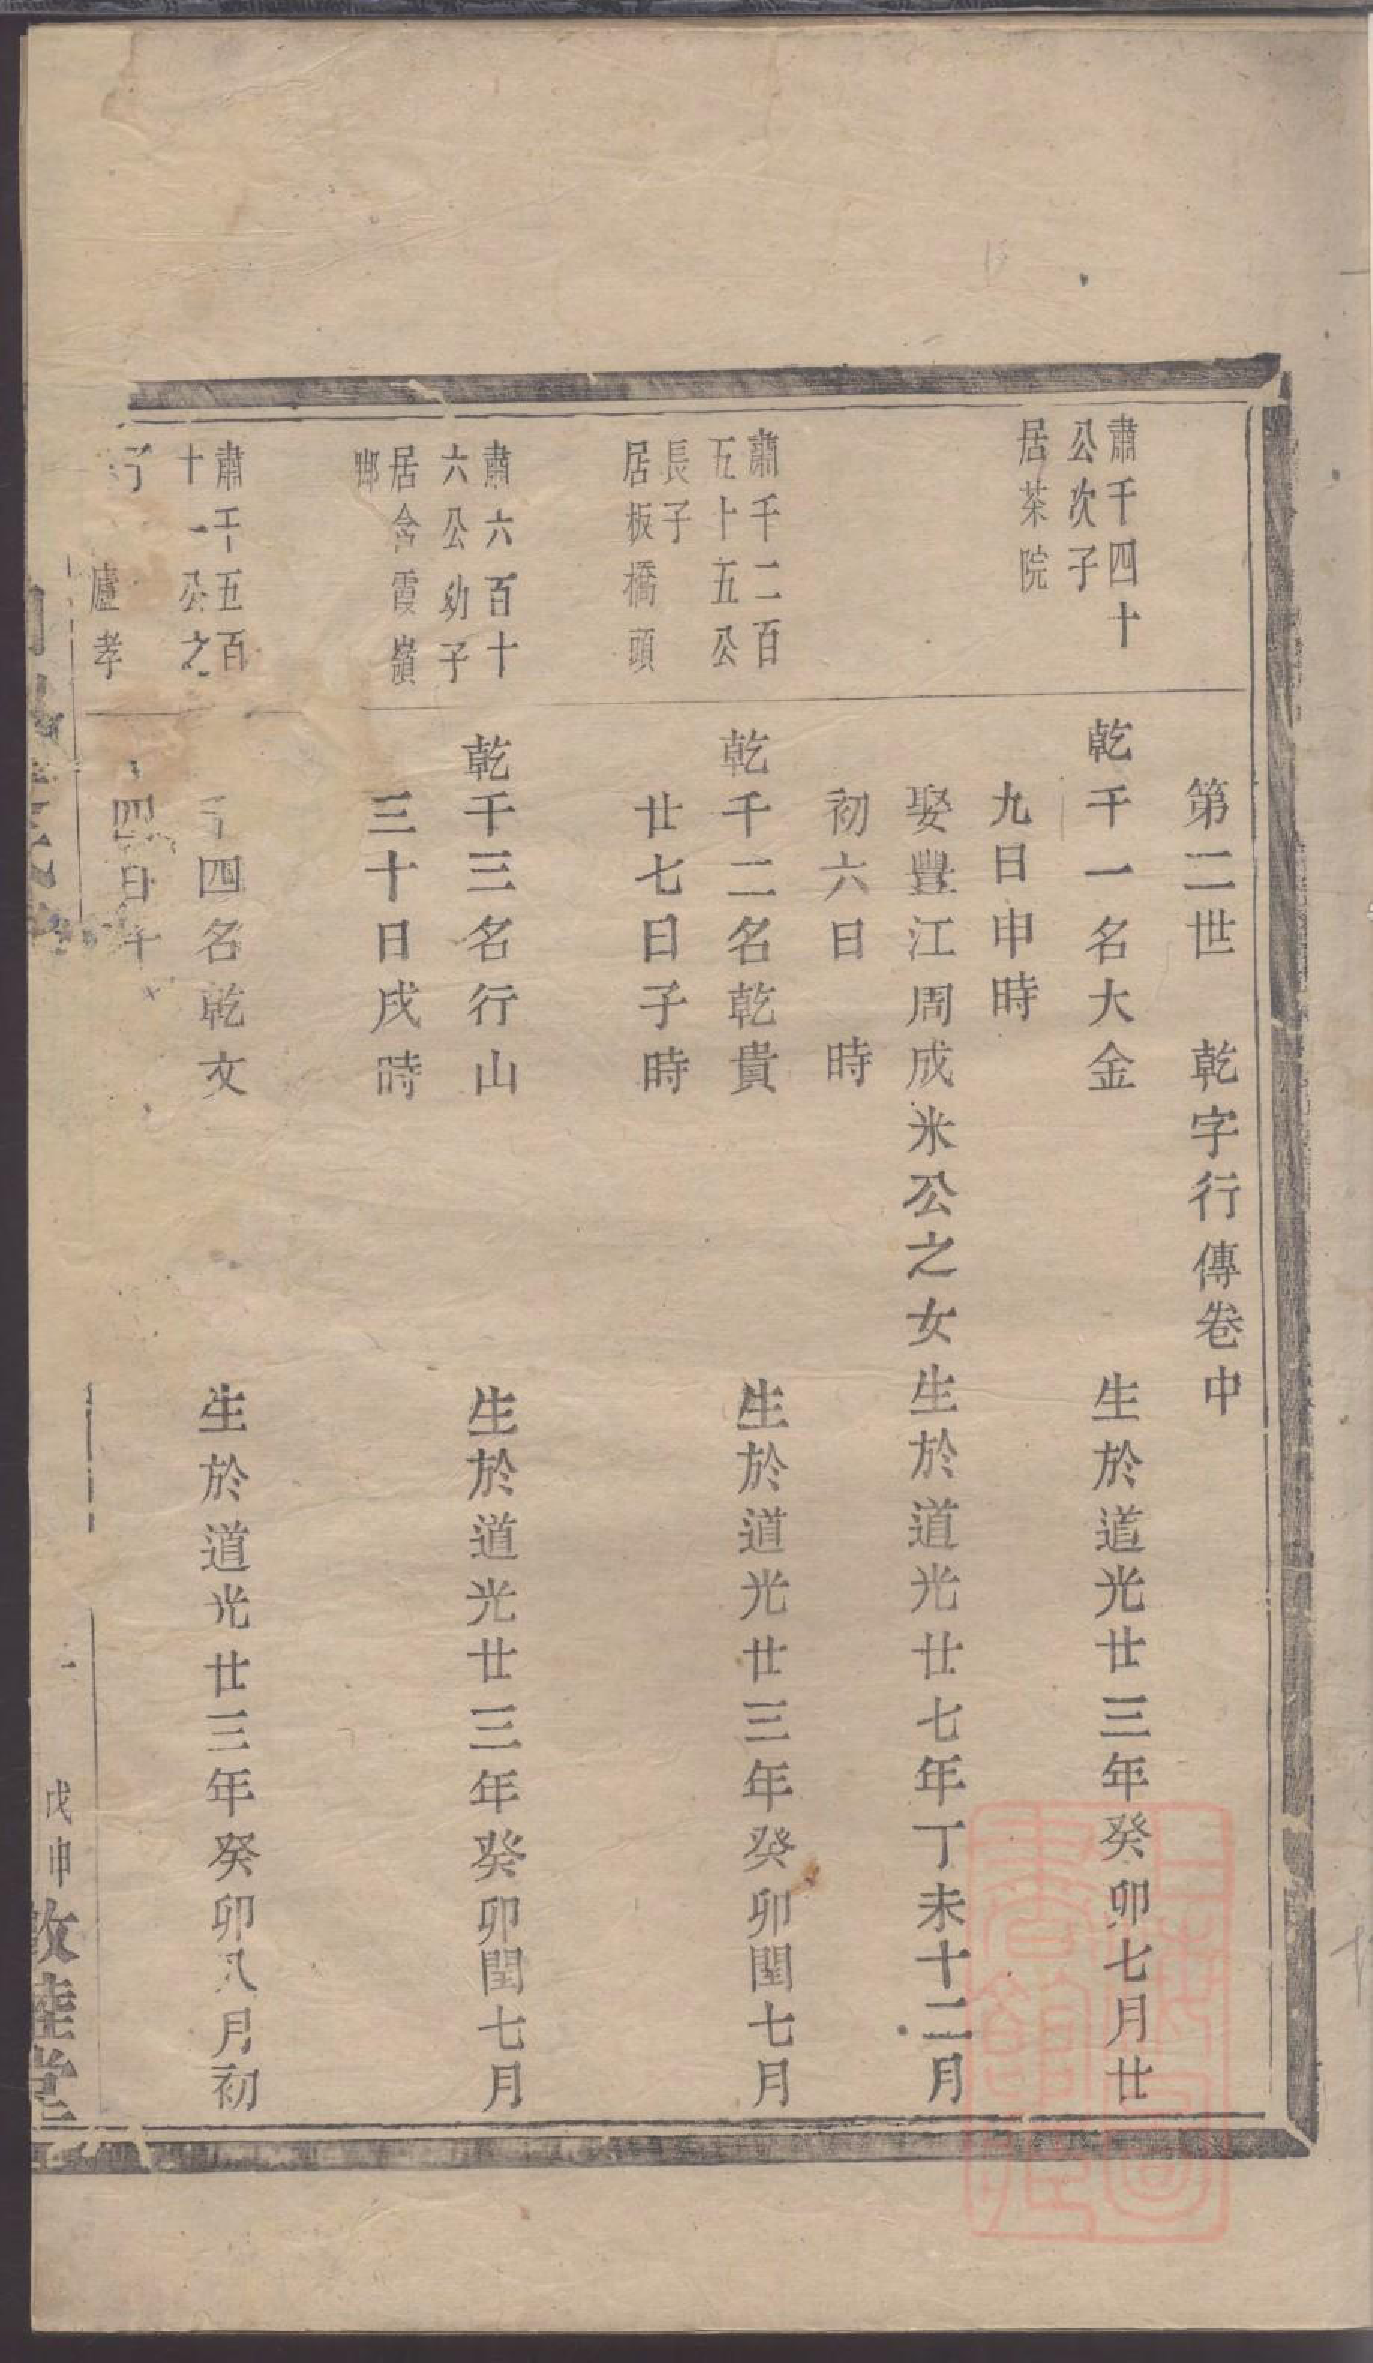 第二世　乾字行傳卷中
肅千四十
公次子
居茶院
乾千一名大金　生於道光廿三年癸卯七月廿
九日申時
娶豐江周成米公之女生於道光廿七年丁未十二月
初六日　時
肅千二百
五十五公
長子
居板橋頭
乾千二名乾貴　生於道光廿三年癸卯閏七月
廿七日子時
肅六百十
六公幼子
居舍霞嶺
乾千三名行山　生於道光廿三年癸卯閏七月
三十日戌時
肅千五百
十一公之
子
廬孝
千四名乾文　生於道光廿三年癸卯八月初
四日午
一
戊申
敦睦堂
上海圖書館藏